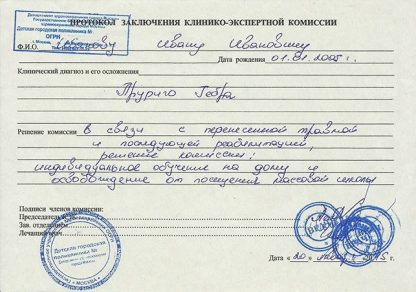 Департамент здравоохранения города Москвы
Детская городская поликлиника №
ОГРН
ПРОТОКОЛ ЗАКЛЮЧЕНИЯ КЛИНИКО-ЭКСПЕРТНОЙ КОМИССИИ
Ф.И.О. Иванову Ивану Ивановичу
Дата рождения 01.01.2005г.
Клинический диагноз и его осложнения
Пруриго Гебра
Решение комиссии в связи с перенесенной травмой
и последующей реабилитацией,
решение комиссии:
индивидуальное обучение на дому и
освобождение от посещения массовой школы
Подписи членов комиссии:
Председатель
Зав. отделением
Лечащий врач
Детская городская
поликлиника №
МОСКВА
Дата «20»